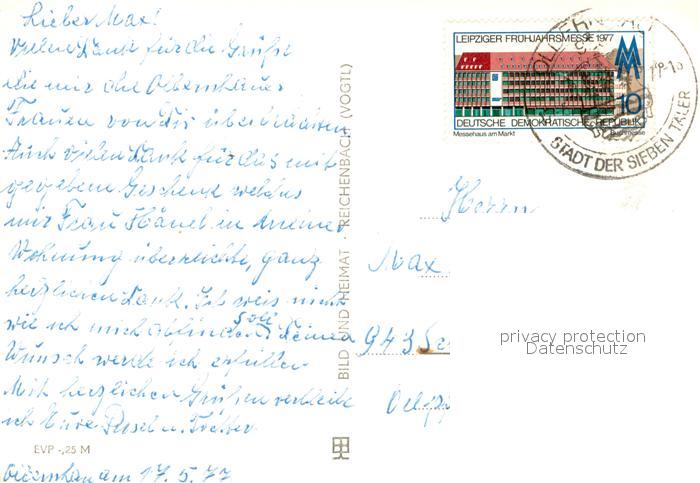 Lieber Max!
Vielen Dank für die Grüße
die mir die Olbernhauer
Frauen von Dir überbrachten
Auch vielen Dank für das mit
gegebene Geschenk welches
mir Frau Hänel in meiner
Wohnung überreichte, ganz
herzlichen Dank. Ich weis nicht
wie ich mich abfinden soll Deinen
Wunsch werde ich erfüllen
Mit herzlichen Grüßen verbleibe
ich Eure
Olbernhau am 17.5.77
EVP -,25 M
BILD UND HEIMAT · REICHENBACH (VOGTL)
LEIPZIGER FRÜHJAHRSMESSE 1977
MM
10
DEUTSCHE DEMOKRATISCHE REPUBLIK
Messehaus am Markt Buchmesse
STADT DER SIEBEN TÄLER
Herrn
Max
943
privacy protection
Datenschutz